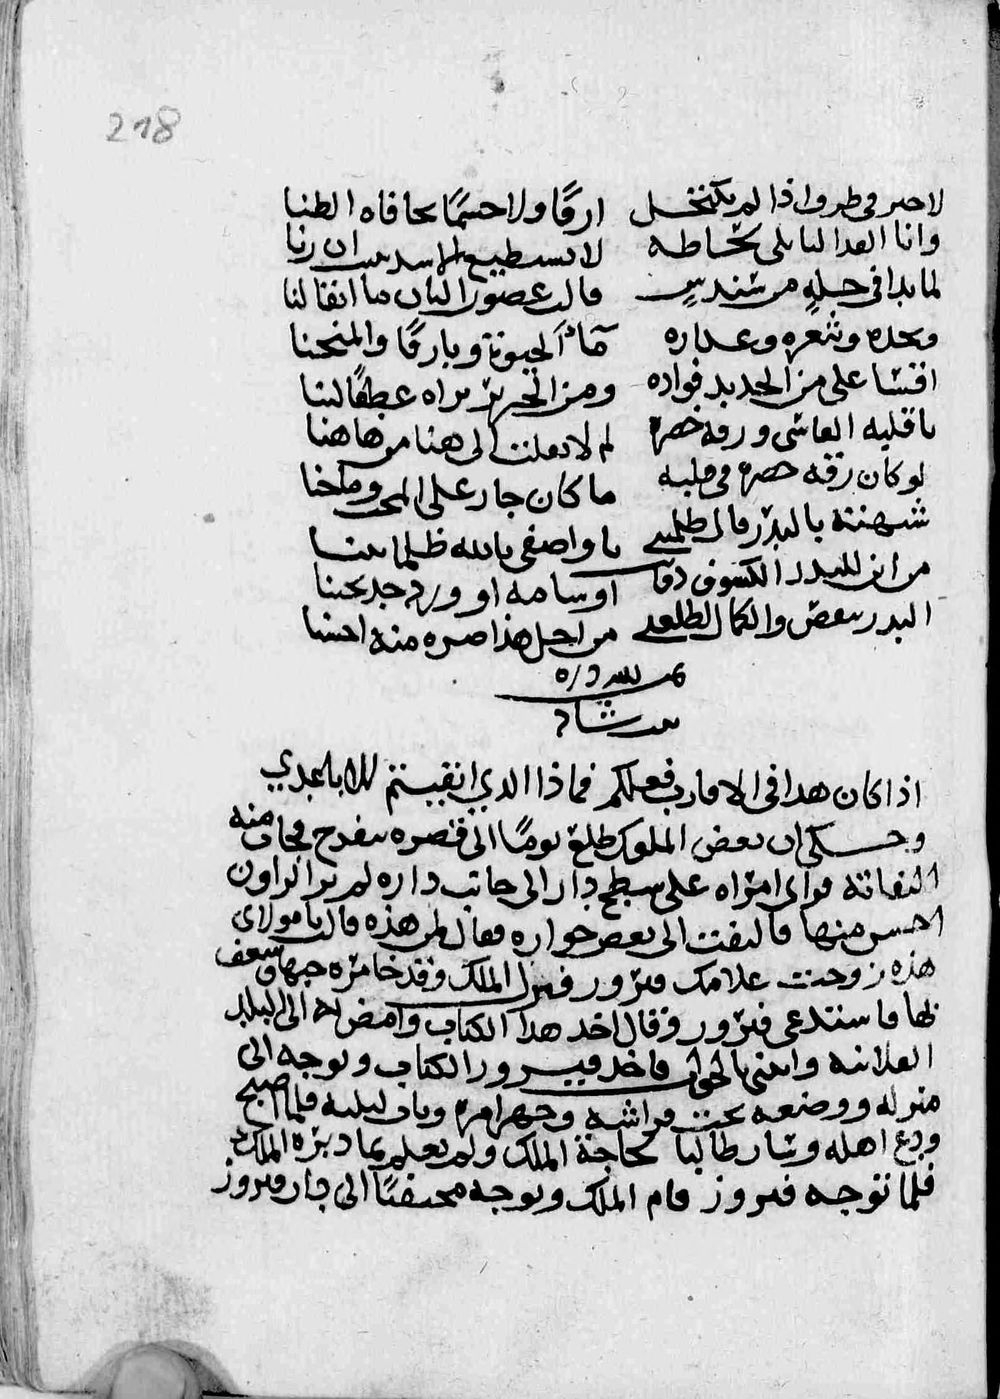 218
لا خير في طرف اذا لم يكتحل ارقا ولا جسما تحافاه الضنا
وانا الفدا لبابلي لحاظه لا تستطيع الاسد ان رنا
لما بدا في حلة من سندس قالت غصون البان ما ابقا لنا
وبخده وشعره وعداره ماء الحيوة وبارقا والمنحنا
اقسا على من الحديد فواده ومن الحرير تراه عطفا لينا
يا قلبه القاسى ورقة خصره لم لا نقلت الى هنا من هاهنا
لو كان رقة خصره في قلبه ما كان جار على المحب وما جنا
شبهته بالبدر قال ظلمتني يا واصفي بالله ظلما بينا
من اين للبدر الكسوف اوسامه او ورد خد يجتنا
البدر ينقص والكمال لطلعتي من اجل هذا صره منه احسنا
اذا كان هدا في الاقارب فعلكم فماذا الدي ابقيتم للاباعدي
وحكى ان بعض الملوك طلع يوما الى قصره يتفرج فحان منه
التفاتة فراى امراه على سطح دار الى جانب داره لم ير الراون
احسن منها فالتفت الى بعض جواره فقال لمن هذه قالت يا مولاى
هذه زوجت غلامك فيروز فنزل الملك وقد خامره حبها وشغف
بها فاستدعى فيروز وقال اخد هدا الكتاب وامض به الى البلد
الفلانيه واتنى بالجواب فاخد فيروز الكتاب وتوجه الى
منزله ووضعه تحت فراشه وجهز امره وبات ليلته فلما اصبح
ودع اهله وسار طالبا لحاجة الملك ولم يعلم بما دبره الملك
فلما توجه فيروز قام الملك وتوجه مختفيا الى دار فيروز